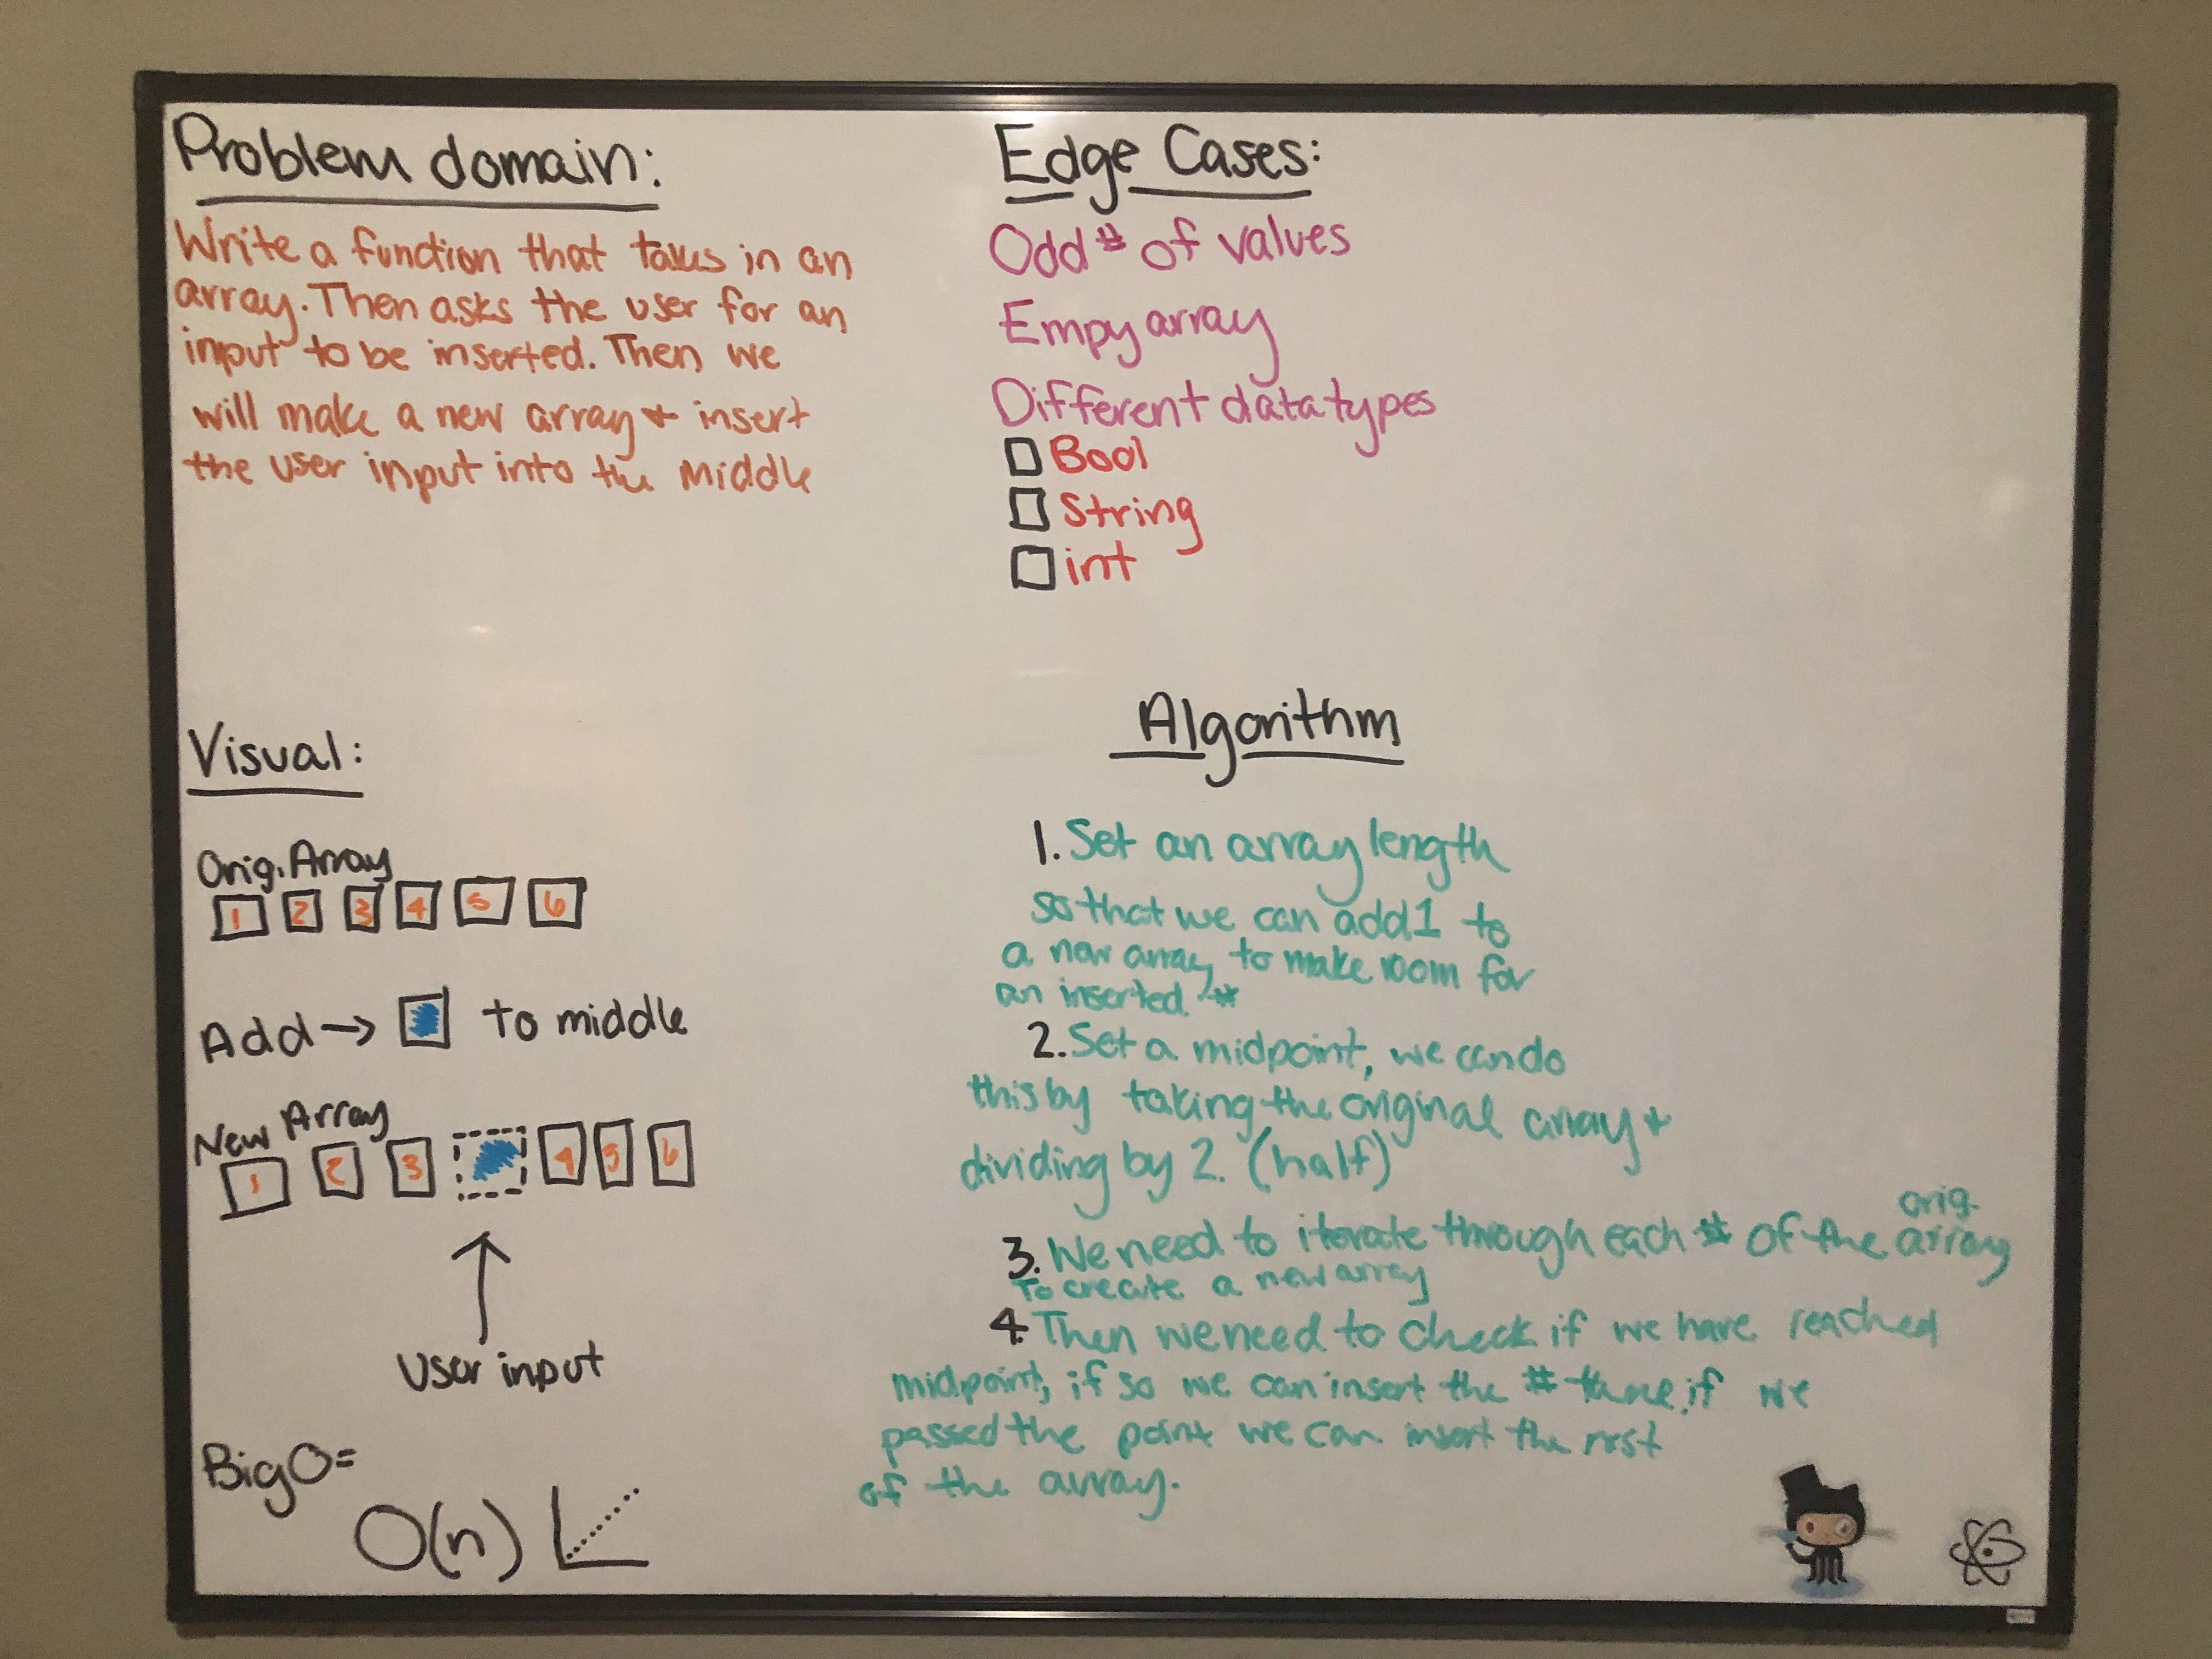 Problem domain:
Write a function that takes in an
array. Then asks the user for an
input to be inserted. Then we
will make a new array + insert
the user input into the Middle
Edge Cases:
Odd # of values
Empy array
Different datatypes
Bool
String
int
Visual:
Orig. Array
1 2 3 4 5 6
Add → to middle
New Array
1 2 3 4 5 6
User input
Big O =
O(n)
Algorithm
1. Set an array length
so that we can add 1 to
a new array to make room for
an inserted #
2. Set a midpoint, we can do
this by taking the original array +
dividing by 2. (half)
orig.
3. We need to iterate through each # of the array
To create a new array
4. Then we need to check if we have reached
midpoint, if so we can insert the # there, if we
passed the point we can insert the rest
of the array.